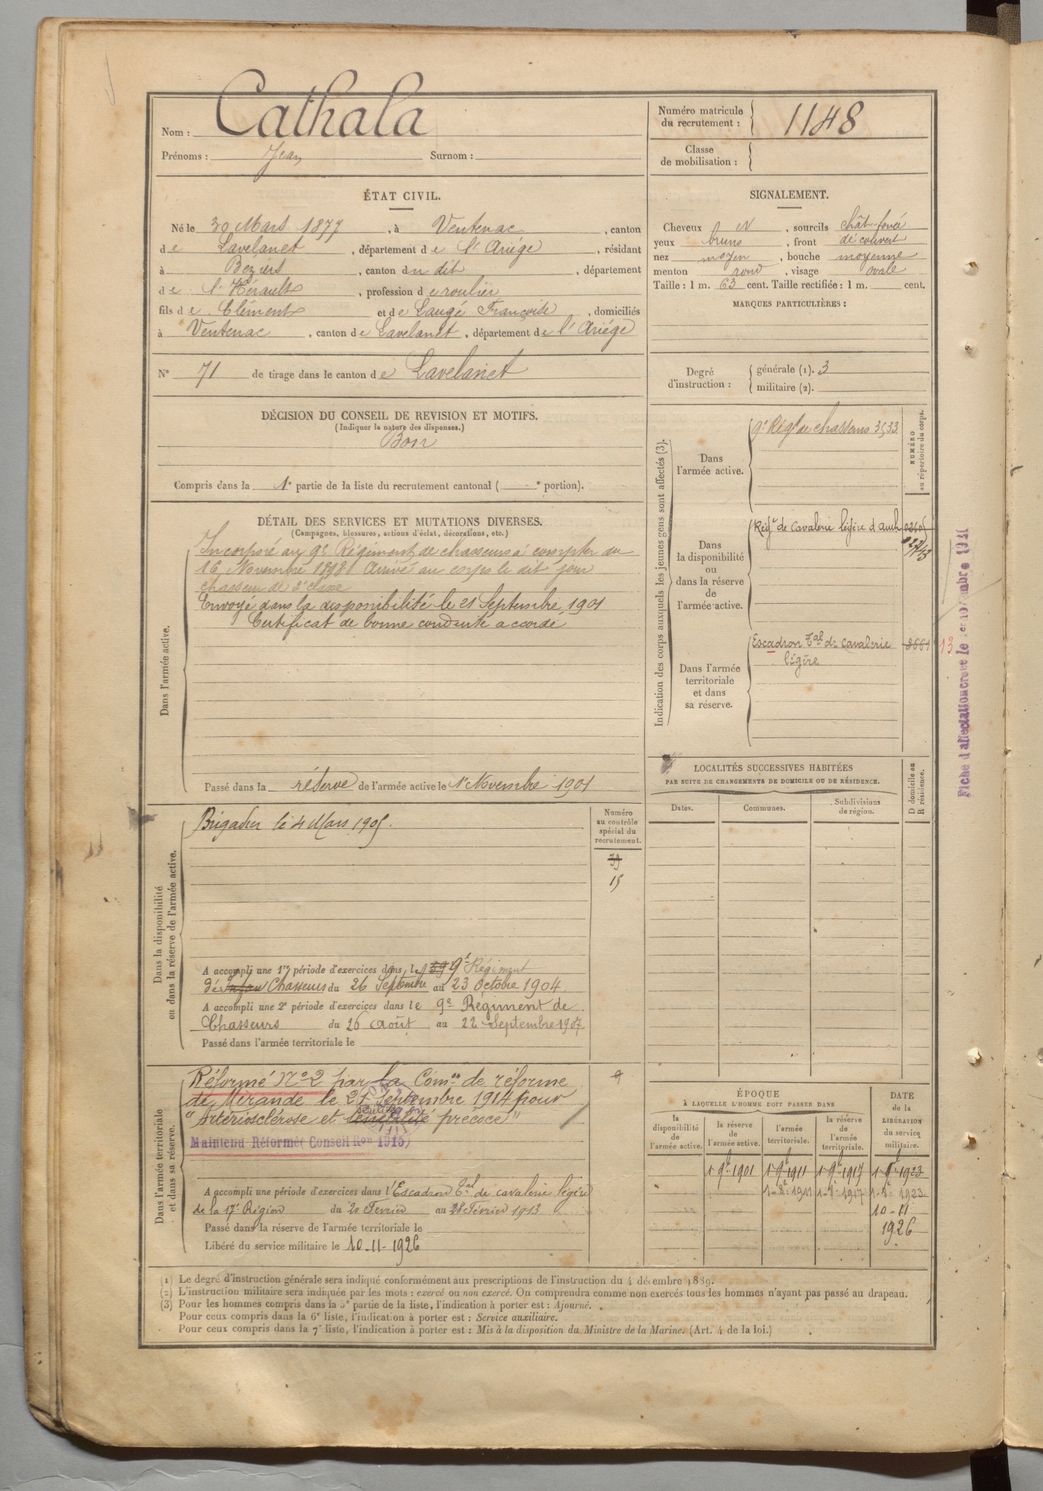 Nom : Cathala
Prénoms : Jean Surnom :
Numéro matricule du recrutement : 1148
Classe de mobilisation :
ÉTAT CIVIL.
Né le 30 Mars 1877, à Ventenac, canton
de Lavelanet, département de l'Ariége, résidant
à Beziers, canton du dit, département
de l'Hérault, profession de roulier
fils de Clément et de Laugé Françoise, domiciliés
à Ventenac, canton de Lavelanet, département de l'Ariége
N° 71 de tirage dans le canton de Lavelanet
SIGNALEMENT.
Cheveux et, sourcils chât. foncé
yeux bruns, front découvert
nez moyen, bouche moyenne
menton rond, visage ovale
Taille : 1 m. 63 cent. Taille rectifiée : 1 m. cent.
MARQUES PARTICULIÈRES :
Degré d'instruction : générale (1). 3
militaire (2).
DÉCISION DU CONSEIL DE REVISION ET MOTIFS.
(Indiquer la nature des dispenses.)
Bon
Compris dans la 1e partie de la liste du recrutement cantonal ( e portion).
DÉTAIL DES SERVICES ET MUTATIONS DIVERSES.
(Campagnes, blessures, actions d'éclat, décorations, etc.)
Dans l'armée active.
Incorporé au 9e Régiment de chasseurs à compter du
16 Novembre 1898 Arrivé au corps le dit jour
chasseur de 2e classe
Envoyé dans la disponibilité le 21 Septembre 1901
Certificat de bonne conduite accordé
Passé dans la réserve de l'armée active le 1er Novembre 1901
Indication des corps auxquels les jeunes gens sont affectés (3).
NUMÉRO au répertoire du corps.
Dans l'armée active.
9e Régt de chasseurs 3533
Dans la disponibilité ou dans la réserve de l'armée active.
Régt de Cavalerie légère d'Auch
Dans l'armée territoriale et dans sa réserve.
Escadron Tal de Cavalerie
légère
13
Fiche d'affectation créée le
LOCALITÉS SUCCESSIVES HABITÉES
PAR SUITE DE CHANGEMENTS DE DOMICILE OU DE RÉSIDENCE.
Dates. Communes. Subdivisions de région. D domicile ou R résidence.
Dans la disponibilité ou dans la réserve de l'armée active.
Brigadier le 4 Mars 1905.
Numéro au contrôle spécial du recrutement.
39
15
A accompli une 1re période d'exercices dans le 9e Régiment
de Chasseurs du 26 Septembre au 23 Octobre 1904
A accompli une 2e période d'exercices dans le 9e Régiment de
Chasseurs du 26 Août au 22 Septembre 1907
Passé dans l'armée territoriale le
Dans l'armée territoriale et dans sa réserve.
Réformé N° 2 par la Comon de réforme
de Mirande le 21 Septembre 1914 pour
"Artériosclérose et sénilité précoce"
Maintenu Réformé (Conseil Ron 1915)
A accompli une période d'exercices dans l'Escadron Tal de cavalerie légère
de la 17e Région du 20 Fevrier au 28 Février 1913
Passé dans la réserve de l'armée territoriale le
Libéré du service militaire le 10-11-1926
ÉPOQUE
À LAQUELLE L'HOMME DOIT PASSER DANS
la disponibilité de l'armée active. la réserve de l'armée active. l'armée territoriale. la réserve de l'armée territoriale.
DATE de la LIBÉRATION du service militaire.
1-9e 1901 1-9e 1911 1-9e 1917 1-9e 1923
1-8e 1911 1-8e 1917 1-8e 1923
10-11
1926
(1) Le degré d'instruction générale sera indiqué conformément aux prescriptions de l'instruction du 4 décembre 1889.
(2) L'instruction militaire sera indiquée par les mots : exercé ou non exercé. On comprendra comme non exercés tous les hommes n'ayant pas passé au drapeau.
(3) Pour les hommes compris dans la 5e partie de la liste, l'indication à porter est : Ajourné.
Pour ceux compris dans la 6e liste, l'indication à porter est : Service auxiliaire.
Pour ceux compris dans la 7e liste, l'indication à porter est : Mis à la disposition du Ministre de la Marine. (Art. 4 de la loi.)